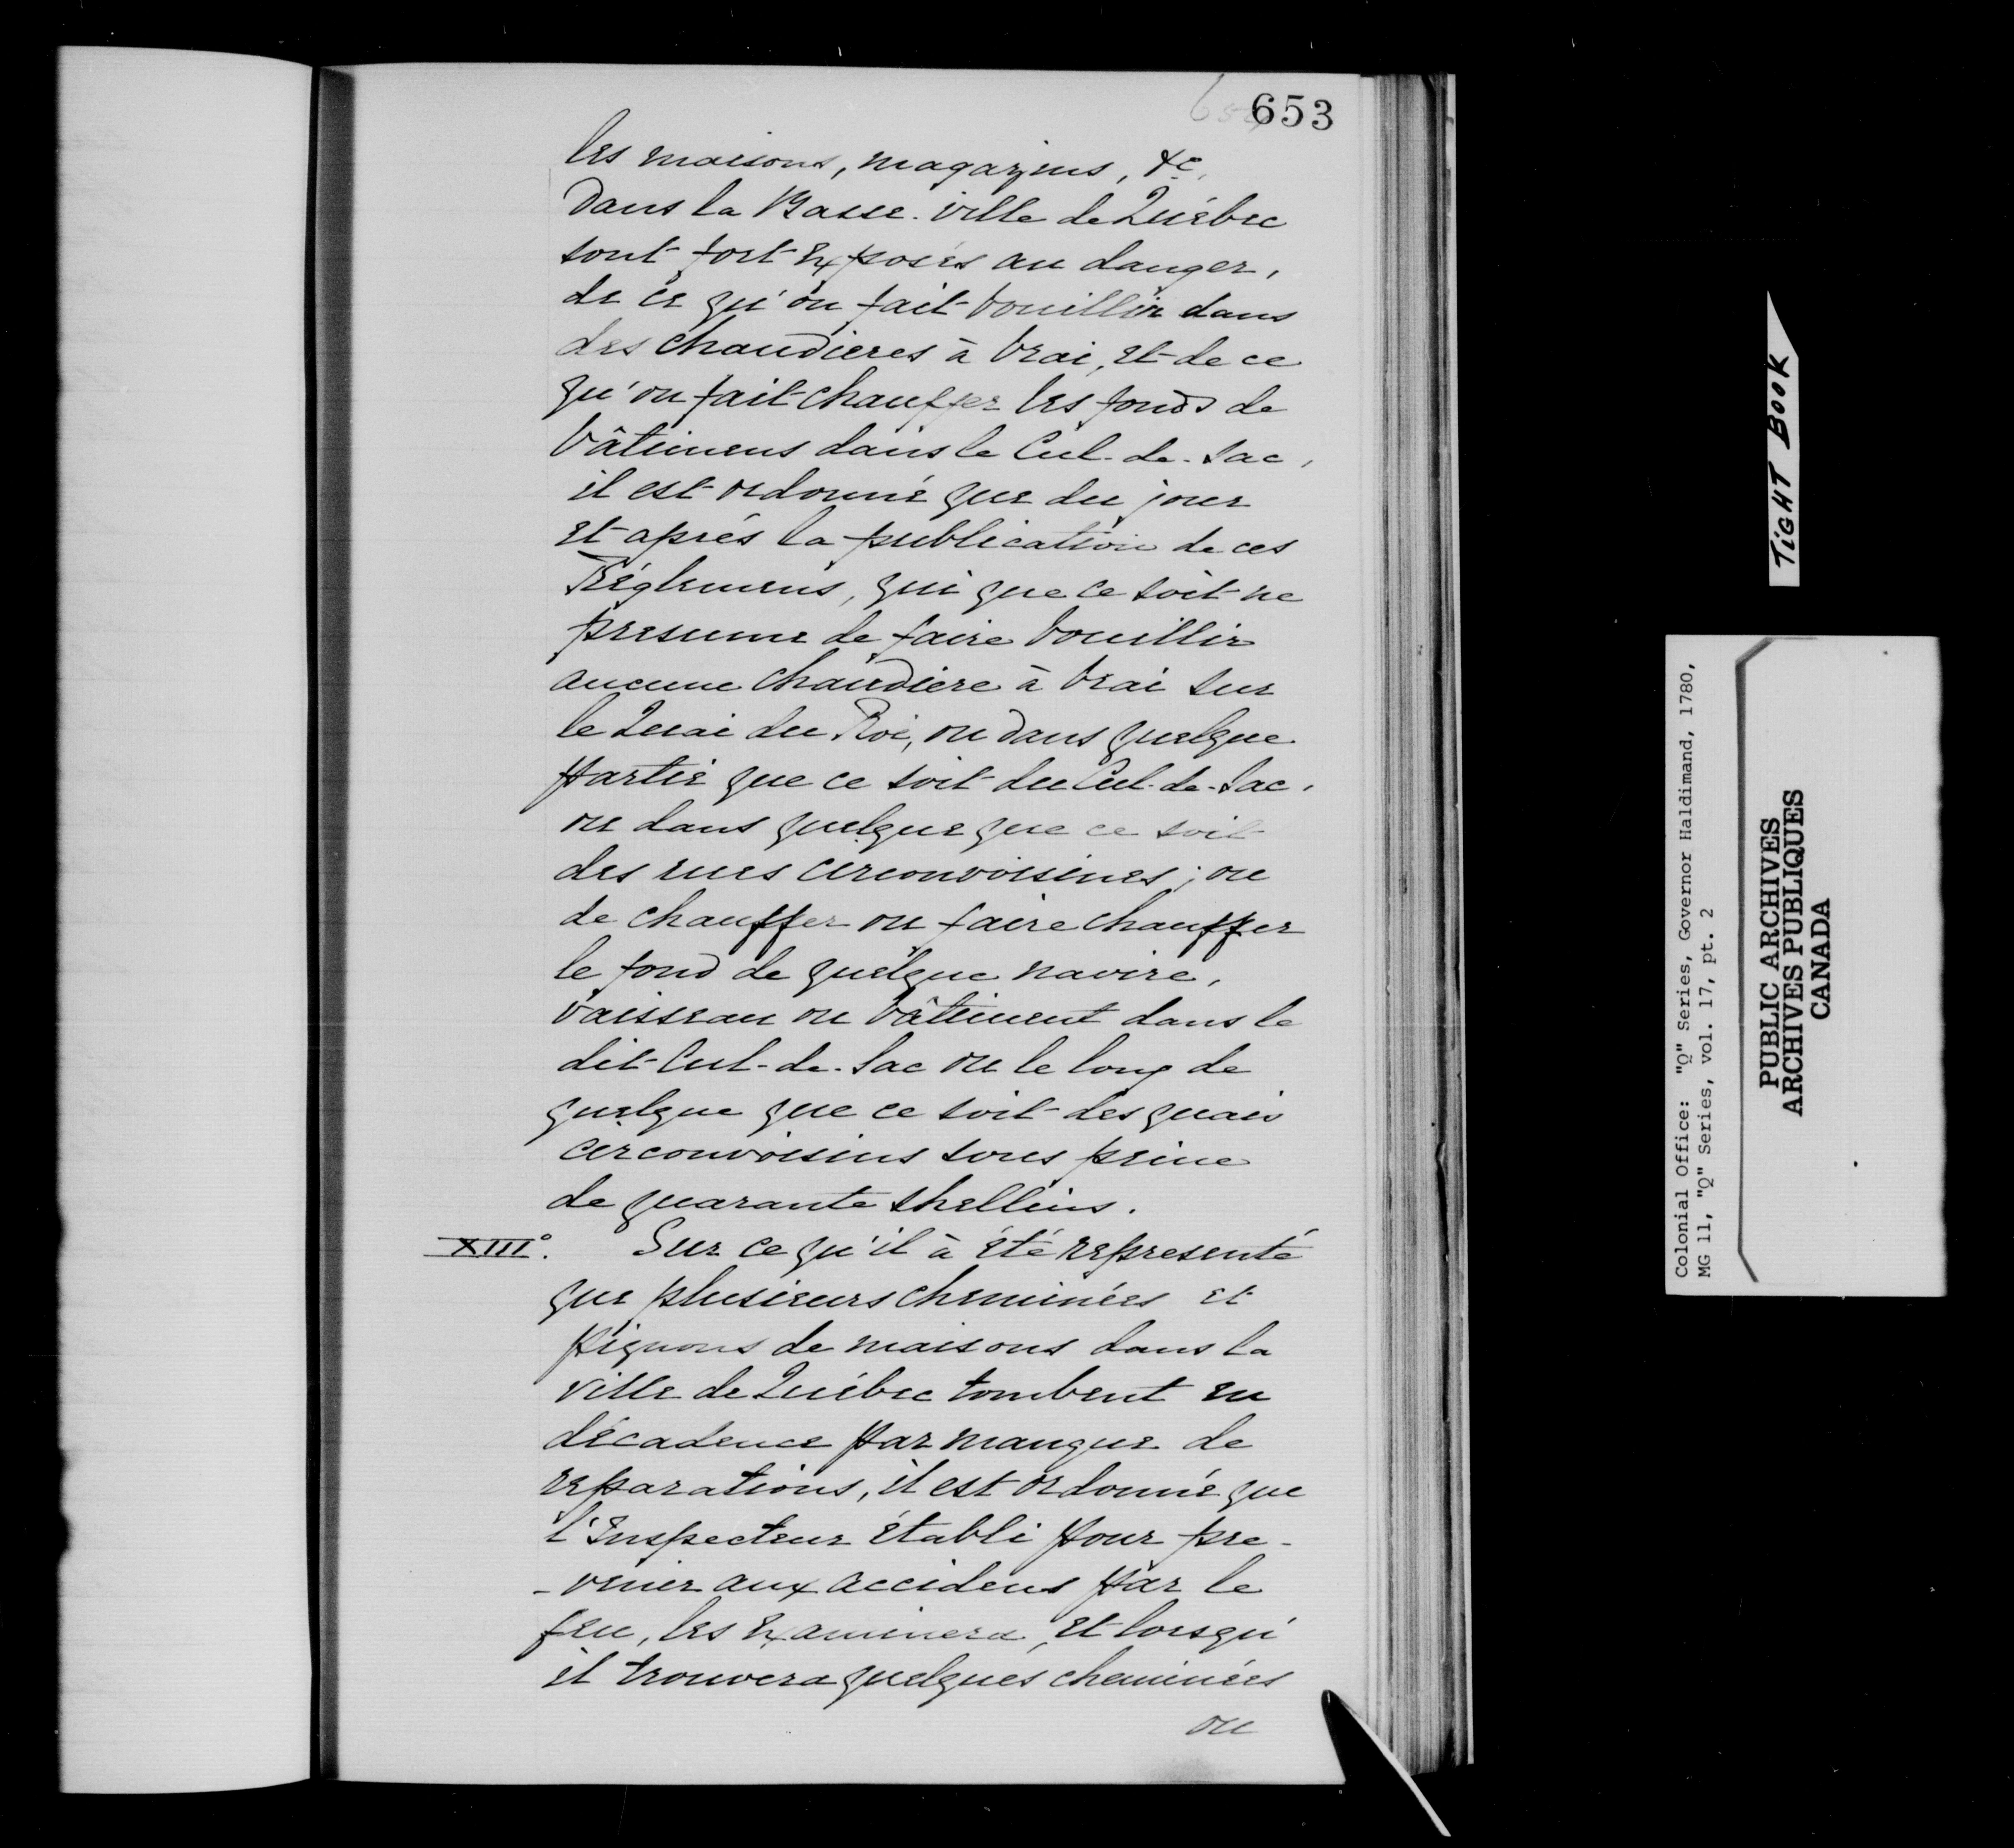 653
les maisons, magazins, &c,
Dans la Basse-ville de Québec
sont fort exposés au danger,
de ce qu'on fait bouillir dans
des chaudieres à brai, et de ce
qu'on fait chauffer les fonds de
bâtimens dans le Cul-de-Sac,
il est ordonné que du jour
et après la publication de ces
Réglemens, qui que ce soit ne
presume de faire bouillir
aucune chaudiere à brai sur
le Quai du Roi, ou dans quelque
partie que ce soit du Cul-de-Sac,
ou dans quelque que ce soit
des rues circonvoisines; ou
de chauffer ou faire chauffer
le fond de quelque navire,
vaisseau ou bâtiment dans le
dit Cul-de-Sac ou le long de
quelque que ce soit des quais
circonvoisins sous peine
de quarante shellins.
XIII°. Sur ce qu'il à été representé
que plusieurs cheminées et
pignons de maisons dans la
ville de Québec tombent en
décadence par manque de
reparations, il est ordonné que
l'Inspecteur établi pour pre-
-venir aux accidens par le
feu, les examinera, et lorsqu'
il trouvera quelques cheminées
ou
TiGHT BOOK
Colonial Office: "Q" Series, Governor Haldimand, 1780,
MG 11, "Q" Series, vol. 17, pt. 2
PUBLIC ARCHIVES
ARCHIVES PUBLIQUES
CANADA